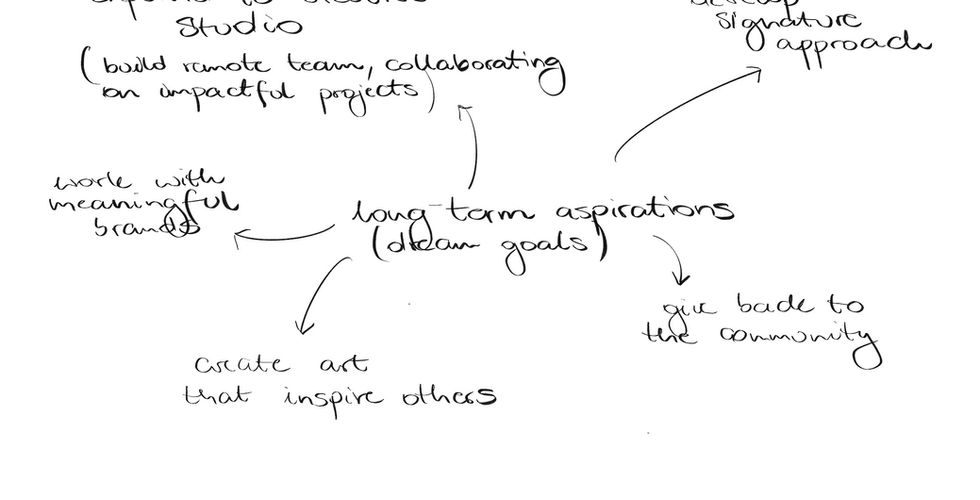 Studio
(build remote team, collaborating
on impactful projects)
develop
signature
approach
work with
meaningful
brands
long-term aspirations
(dream goals)
give back to
the community
create art
that inspire others